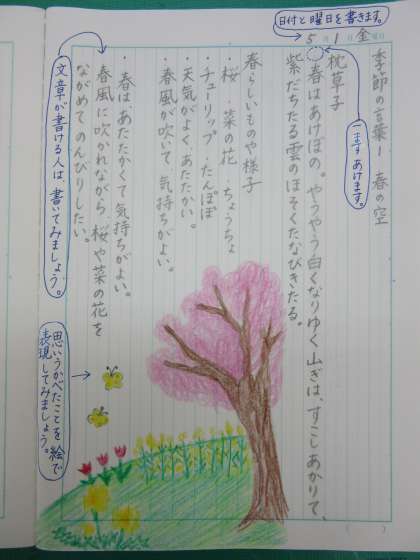 日付と曜日を書きます。
5月1日金曜日
季節の言葉1 春の空
一ます あけます。
枕草子
春はあけぼの。やうやう白くなりゆく山ぎは、すこしあかりて、
紫だちたる雲のほそくたなびきたる。
春らしいものや様子
・桜 ・菜の花 ・ちょうちょ
・チューリップ ・たんぽぽ
・天気がよく、あたたかい。
・春風が吹いて、気持ちがよい。
・春は、あたたかくて気持ちがよい。
春風に吹かれながら、桜や菜の花を
ながめてのんびりしたい。
文章が書ける人は、書いてみましょう。
思いうかべたことを絵で
表現してみましょう。